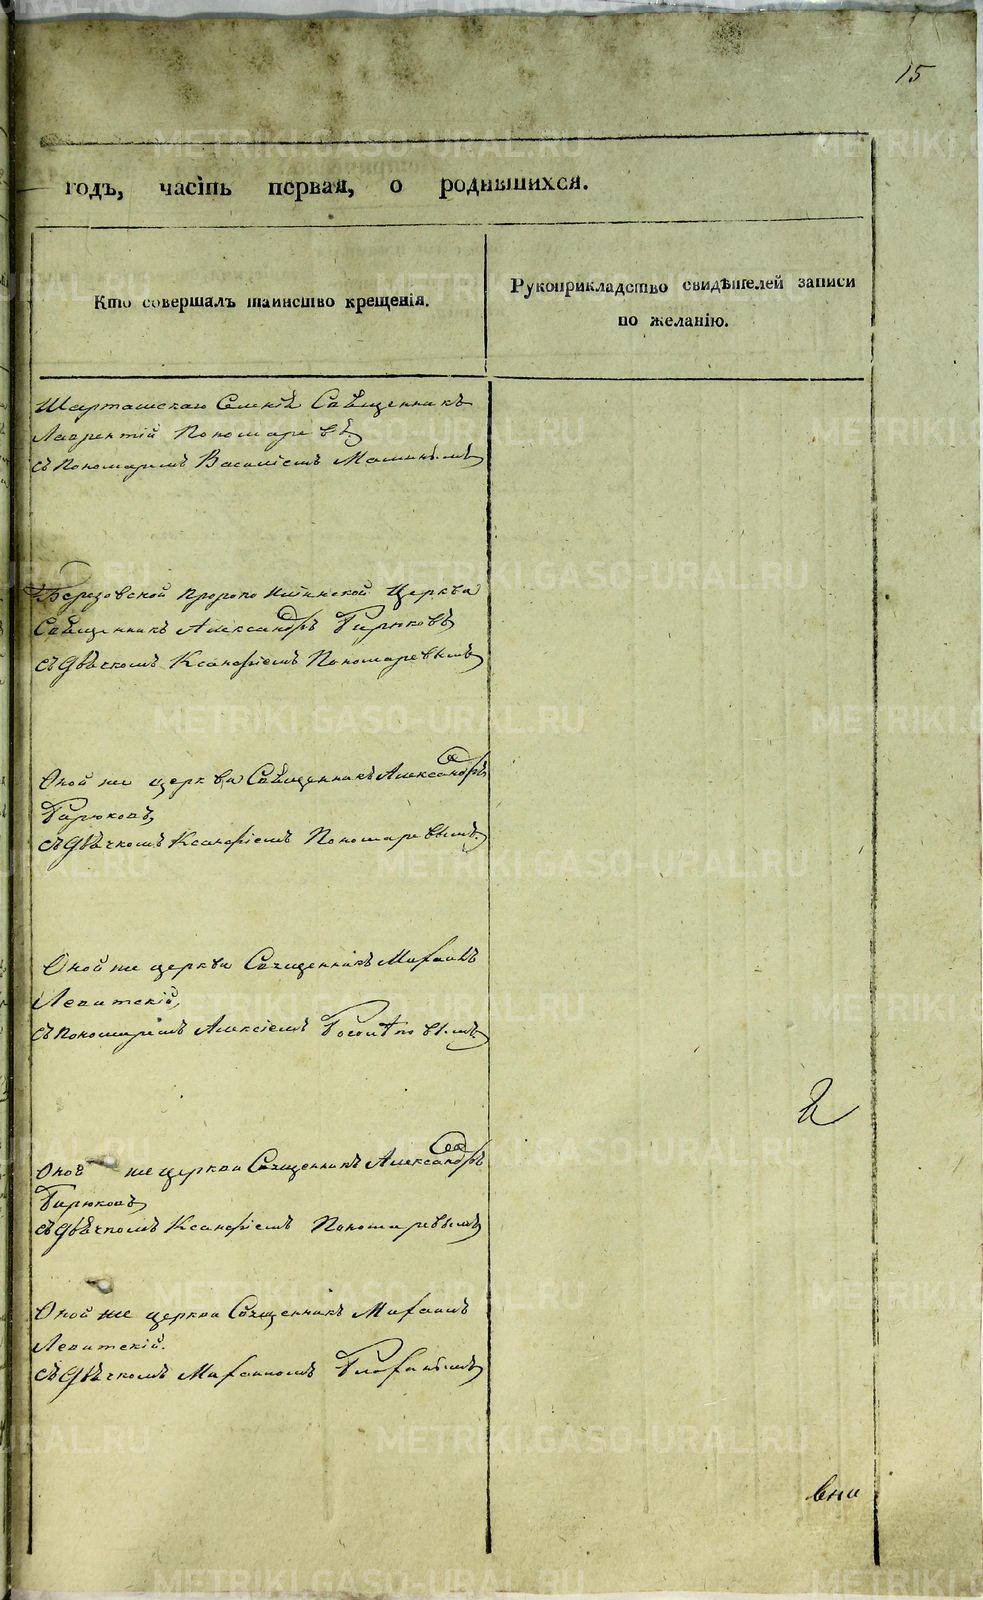 15
годъ, часть первая, о родившихся.
Кто совершалъ таинство крещенія.
Рукоприкладство свидѣтелей записи
по желанію.
Шарташскаго Священникъ
Лаврентій Пономаревъ
съ Пономаремъ Василіемъ
Березовской Пророко Ильинской Церкви
Священникъ Александръ Бирюковъ
съ Дьячкомъ Ксанофіемъ Пономаревымъ
Оной же церкви Священникъ Александръ
Бирюковъ
съ Дьячкомъ Ксанофіемъ Пономаревымъ
Оной же церкви Священникъ Михаилъ
Левитскій
съ Пономаремъ Алексіемъ
Оной же церкви Священникъ Александръ
Бирюковъ
съ Дьячкомъ Ксанофіемъ Пономаревымъ
Оной же церкви Священникъ Михаилъ
Левитскій.
съ Дьячкомъ Михаиломъ
METRIKI.GASO-URAL.RU